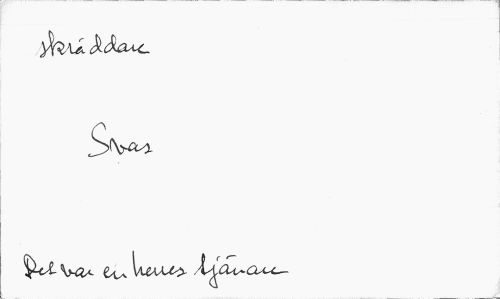 skräddare
Svas
Det var en herres tjänare